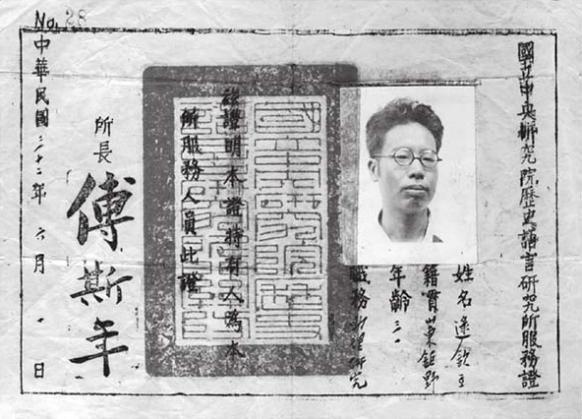 No. 28
國立中央研究院歷史語言研究所服務證
姓名 逯欽立
籍貫 山東鉅野
年齡 三一
職務 助理研究
茲證明本證持有人為本
所服務人員此證
所長 傅斯年
中華民國三十二年六月 日